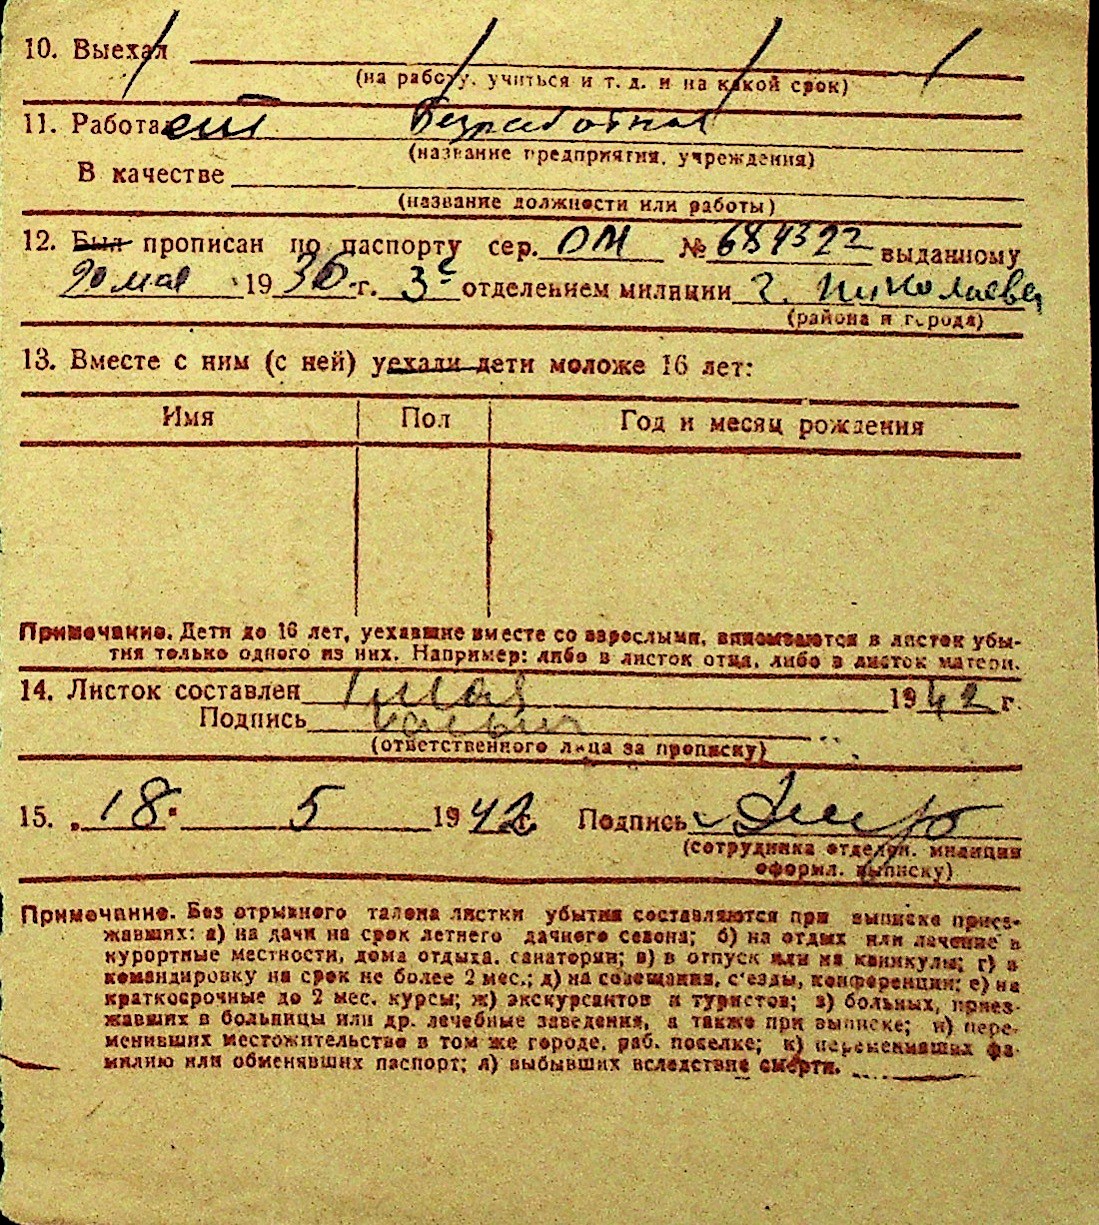 10. Выехал
(на работу, учиться и т. д. и на какой срок)
11. Работает Безработная
(название предприятия, учреждения)
В качестве
(название должности или работы)
12. Был прописан по паспорту сер. ОМ № 684392 выданному
20 мая 1936 г. 3е отделением милиции г. Николаева
(района и города)
13. Вместе с ним (с ней) уехали дети моложе 16 лет:
Имя Пол Год и месяц рождения
Примечание. Дети до 16 лет, уехавшие вместе со взрослыми, вписываются в листок убы-
тия только одного из них. Например: либо в листок отца, либо в листок матери.
14. Листок составлен 1942 г.
Подпись
(ответственного лица за прописку)
15. „18" 5 1942 г. Подпись
(сотрудника отделен. милиции
оформл. выписку)
Примечание. Без отрывного талона листки убытия составляются при выписке приез-
жавших: а) на дачи на срок летнего дачного сезона; б) на отдых или лечение в
курортные местности, дома отдыха, санатории; в) в отпуск или на каникулы; г) в
командировку на срок не более 2 мес.; д) на совещания, с'езды, конференции; е) на
краткосрочные до 2 мес. курсы; ж) экскурсантов и туристов; з) больных, приез-
жавших в больницы или др. лечебные заведения, а также при выписке; и) пере-
менивших местожительство в том же городе, раб. поселке; к) переменивших фа-
милию или обменявших паспорт; л) выбывших вследствие смерти.